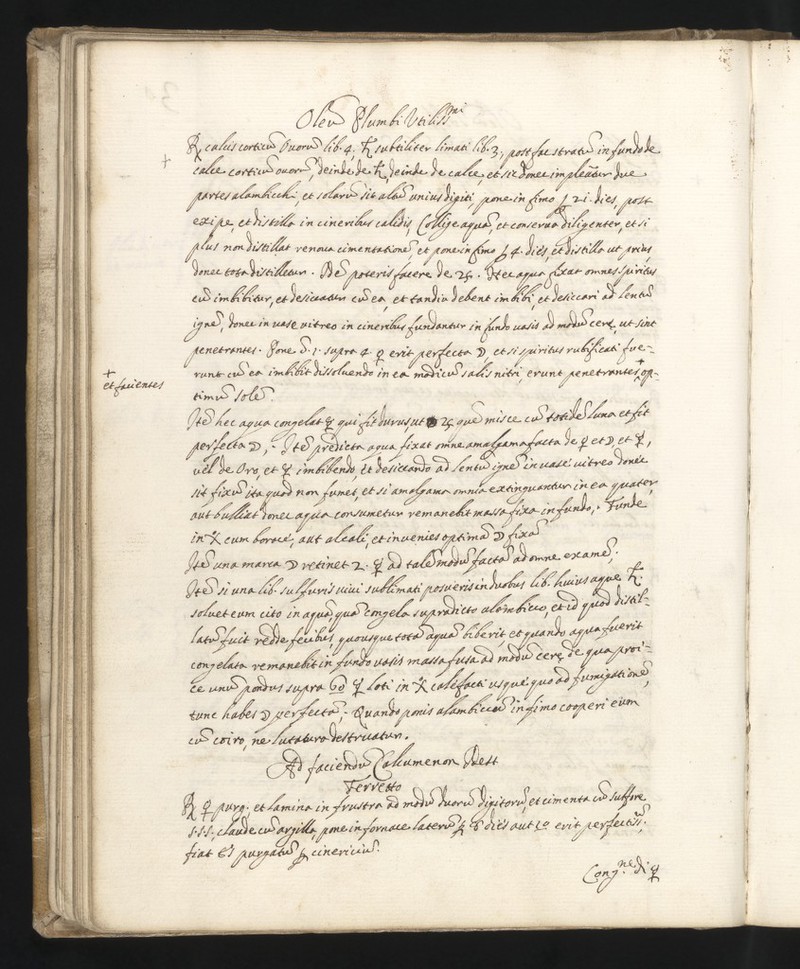 Oleũ Plumbi Utiliss.mi
℞ calcis corticũ Ovorũ lib. 4. ♄ subtiliter limati lib. 3, post fac stratũ in fundo de
calce corticũ ovorũ, deinde de ♄, deinde de calce, et sic donec impleãtur due
partes alambicchi, et solarũ sit altũ unius digiti, pone in fimo ꝑ 21. dies, post
excipe, et distilla in cineribus calidis, Collige aquã, et conserva diligenter, et si
plus non distillat renova cimentationẽ, et pone in fimo ꝑ 4. dies, et distilla ut prius,
donec tota distilletur. Idẽ poteris facere de ♃. Hec aqua fixat omnes spiritus
cũ imbibitur, et desiccatur cũ ea, et tandiu debent imbibi, et desiccari ad lentũ
ignẽ, donec in vase vitreo in cineribus fundantur in fundo vasis ad modũ cerę, ut sint
penetrantes. Pone õ. 1. supra 4. ☿ erit perfecta ☽, et si spiritus rubificati fue-
runt cũ ea imbibit dissolvendo in ea modicũ salis nitri, erunt penetrantes + op-
+
et facientes
timũ solẽ.
Itẽ hec aqua congelat ☿ qui fit durus ut ♃ quẽ misce cũ totidẽ luna et fit
perfecta ☽. Itẽ prędicta aqua fixat omne amalgama facta de ♀ et ☽, et ☿,
vel de Oro, et ☿ imbibendo, et desiccando ad lentũ ignẽ in vase vitreo donec
sit fixũ ita quod non fumet, et si amalgama omnia extinguantur in ea quater,
aut bulliat donec aqua consumetur remanebit massa fixa in fundo. Funde
in cum borace, aut alcali, et invenies optimã ☽ fixã
Itẽ una marca ☽ retinet 2. ☿ ad talẽ modũ factã ad omne examẽ.
Itẽ si una lib. sulfuris vivi sublimati posueris in duobus lib. huius aque ♄
solvet eum cito in aquã, quã congela supradicto alambicco, et id quod distil-
latũ fuit redde fecibus, quousque totã aquã biberit, et quando aqua fuerit
congelata remanebit in fundo vasis massa fusa ad modũ cerę de qua proi-
ce unũ pondus supra 60 ☿ loti in calefacti usque quo ad fumigationẽ,
tunc habes ☽ perfectã. Quando ponis alambiccũ in fimo cooperi eum
cũ coiro, ne lutatura destruatur.
Ad faciendũ Calcumenon Id est
Ferretto
℞ ♀ purg. et lamina in frustra ad modũ duorũ digitorũ, et cimenta cũ sulfure
s.s.s., claude cũ argilla, pone in fornace laterũ ꝑ 8 dies aut 10 erit perfectiss.
fiat purgatũ ꝑ cinericiũ.
Cong.ne di ☿